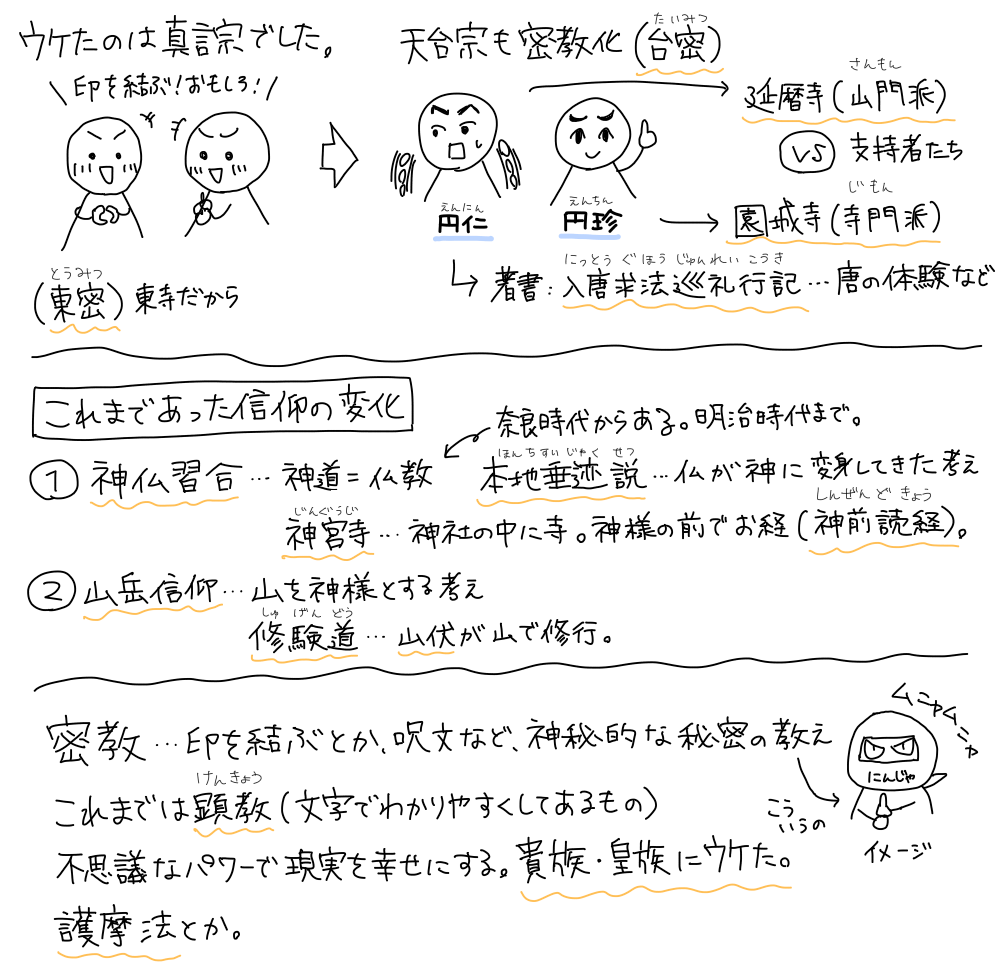 ウケたのは真言宗でした。
\印を結ぶ!おもしろ!/
(東密)東寺だから
とうみつ
天台宗も密教化(台密)
たいみつ
円仁
えんにん
円珍
えんちん
延暦寺(山門派)
さんもん
VS 支持者たち
園城寺(寺門派)
じもん
著書:入唐求法巡礼行記…唐の体験など
にっとう ぐほう じゅんれい こうき
これまであった信仰の変化
奈良時代からある。明治時代まで。
① 神仏習合…神道=仏教
本地垂迹説…仏が神に変身してきた考え
ほんちすいじゃく せつ
神宮寺…神社の中に寺。神様の前でお経(神前読経)。
じんぐうじ
しんぜんどきょう
② 山岳信仰…山を神様とする考え
修験道…山伏が山で修行。
しゅげんどう
密教…印を結ぶとか、呪文など、神秘的な秘密の教え
これまでは顕教(文字でわかりやすくしてあるもの)
けんきょう
不思議なパワーで現実を幸せにする。貴族・皇族にウケた。
護摩法とか。
ムニャムニャ
にんじゃ
こういうの
イメージ